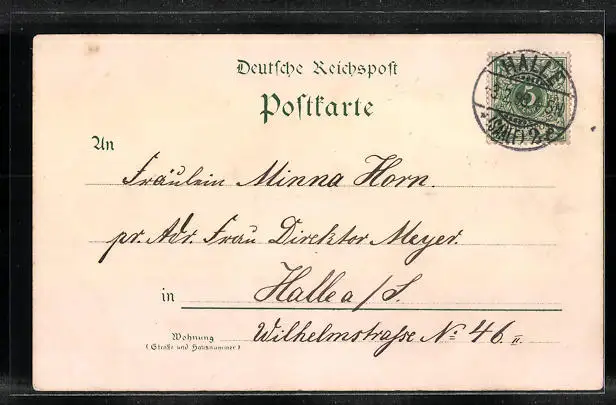 Deutsche Reichspost
Postkarte
HALLE
5
(SAALE) 2
An
Fräulein Minna Horn.
pr. Adr. Frau Direktor Meyer.
in Halle a/S.
Wohnung
(Straße und Hausnummer)
Wilhelmstrasse No 46 II.